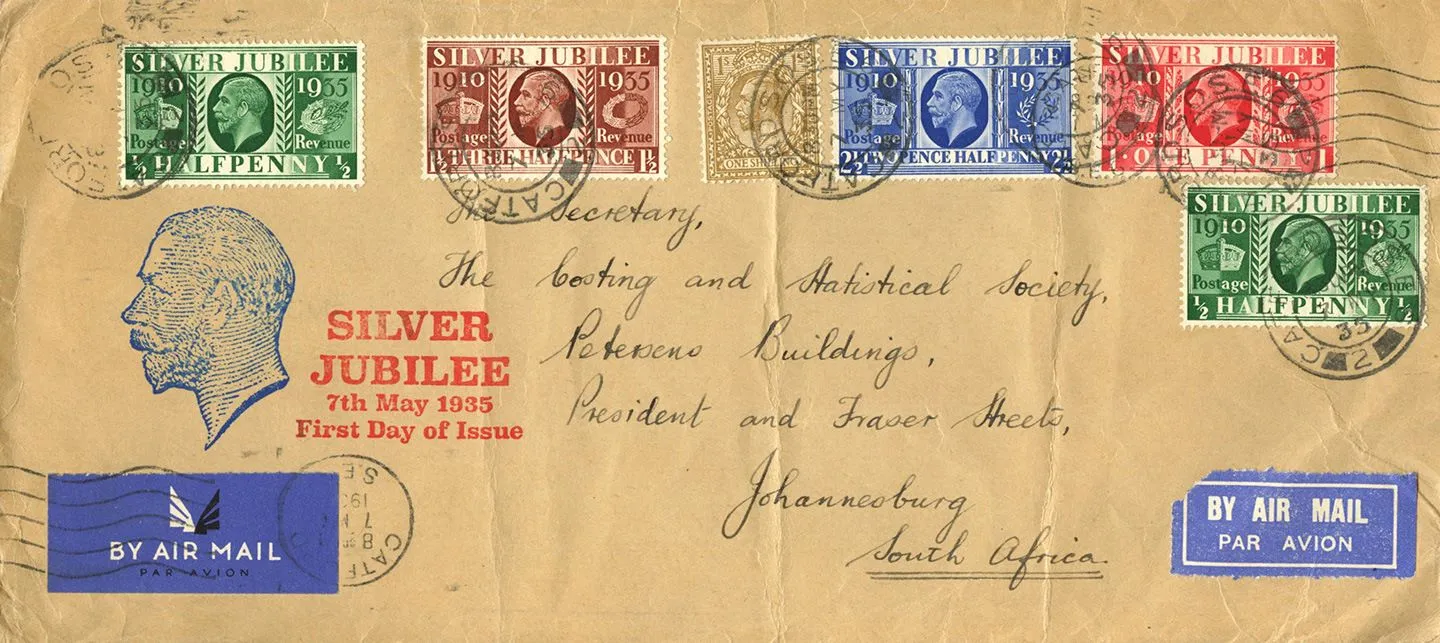 SILVER JUBILEE
1910 1935
Postage Revenue
½ HALFPENNY ½
SILVER JUBILEE
1910 1935
Postage Revenue
1½ THREE HALFPENCE 1½
1s
ONE SHILLING
SILVER JUBILEE
1910 1935
Postage Revenue
2½ TWO PENCE HALFPENNY 2½
SILVER JUBILEE
1910 1935
Postage Revenue
1 ONE PENNY 1
SILVER JUBILEE
1910 1935
Postage Revenue
½ HALFPENNY ½
The Secretary,
The Costing and Statistical Society,
Petersens Buildings,
President and Fraser Streets,
Johannesburg
South Africa.
SILVER
JUBILEE
7th May 1935
First Day of Issue
BY AIR MAIL
PAR AVION
BY AIR MAIL
PAR AVION